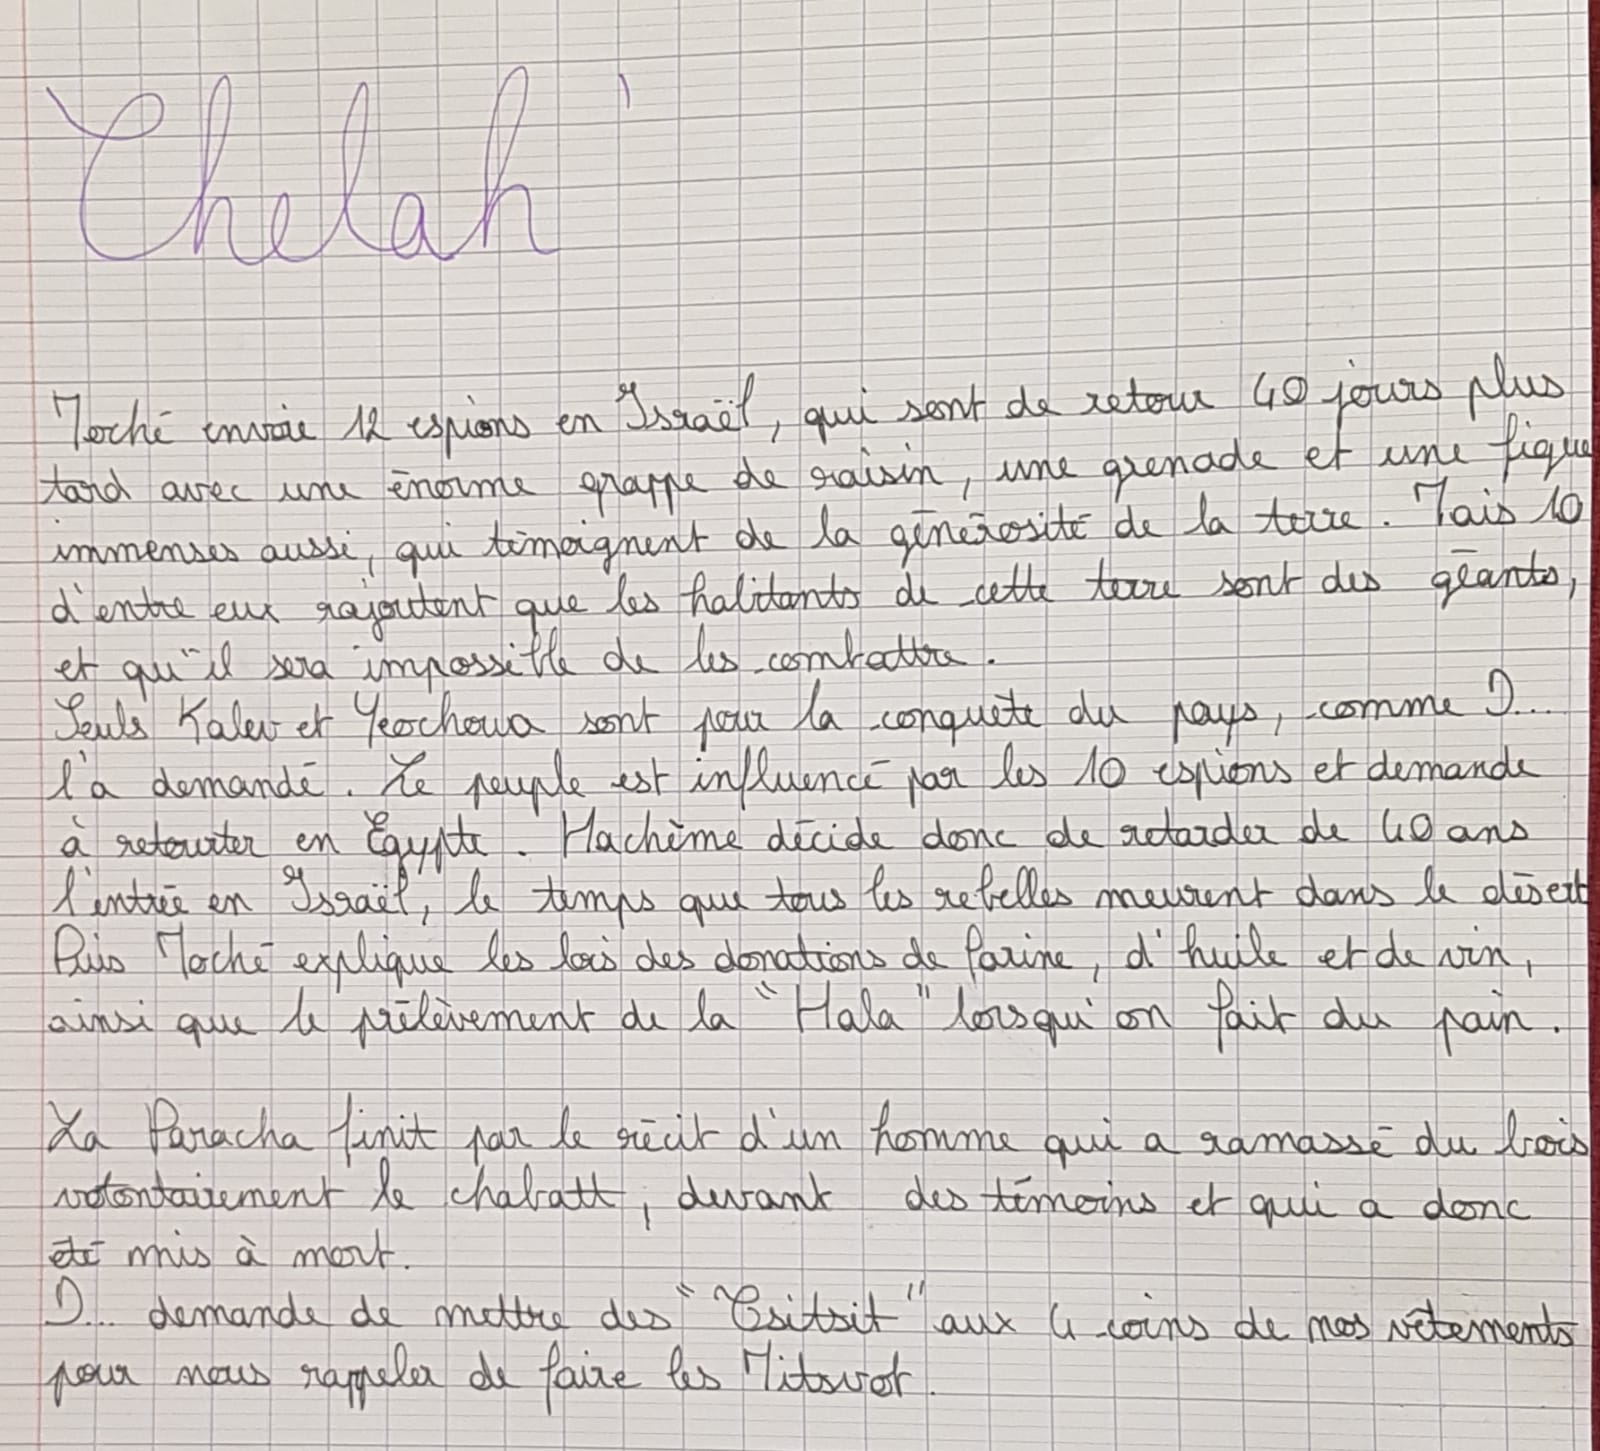 Chelah'
Moché envoie 12 espions en Israël, qui sont de retour 40 jours plus
tard avec une énorme grappe de raisin, une grenade et une figue
immenses aussi, qui témoignent de la générosité de la terre. Mais 10
d'entre eux rajoutent que les habitants de cette terre sont des géants,
et qu'il sera impossible de les combattre.
Seuls Kalev et Yeochoua sont pour la conquête du pays, comme D...
l'a demandé. Le peuple est influencé par les 10 espions et demande
à retourter en Égypte. Hachème décide donc de retarder de 40 ans
l'entrée en Israël, le temps que tous les rebelles meurent dans le désert
Puis Moché explique les lois des donations de farine, d'huile et de vin,
ainsi que le prélèvement de la "Hala" lorsqu'on fait du pain.
La Paracha finit par le récit d'un homme qui a ramassé du bois
volontairement le chabatt, devant des témoins et qui a donc
été mis à mort.
D... demande de mettre des "Tsitsit" aux 4 coins de nos vêtements
pour nous rappeler de faire les Mitsvot.